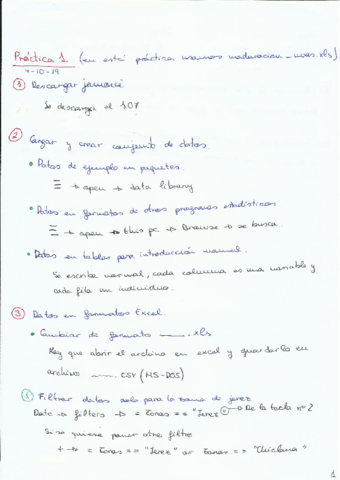 Práctica 1 (en está práctica usamos maduracion_uvas.xls)
4-10-19
① Descargar jamovi
Se descarga el 1.0.7
② Cargar y crear conjunto de datos.
• Datos de ejemplo en paquetes.
≡ → open → data library
• Datos en formatos de otros programas estadísticos
≡ → open → this pc → Browse → se busca.
• Datos en tablas para introducción manual.
Se escribe normal, cada columna es una variable y
cada fila un individuo.
③ Datos en formatos Excel.
• Cambiar de formato ——.xls
Hay que abrir el archivo en excel y guardarlo en
archivo ——.CSV (MS-DOS)
① Filtrar datos solo para la zona de jerez
Data → filters → = Zonas == "Jerez" → De la tecla nº2
Si se quiere poner otro filtro
+ → = Zonas == "Jerez" or Zonas == "Chiclana"
1